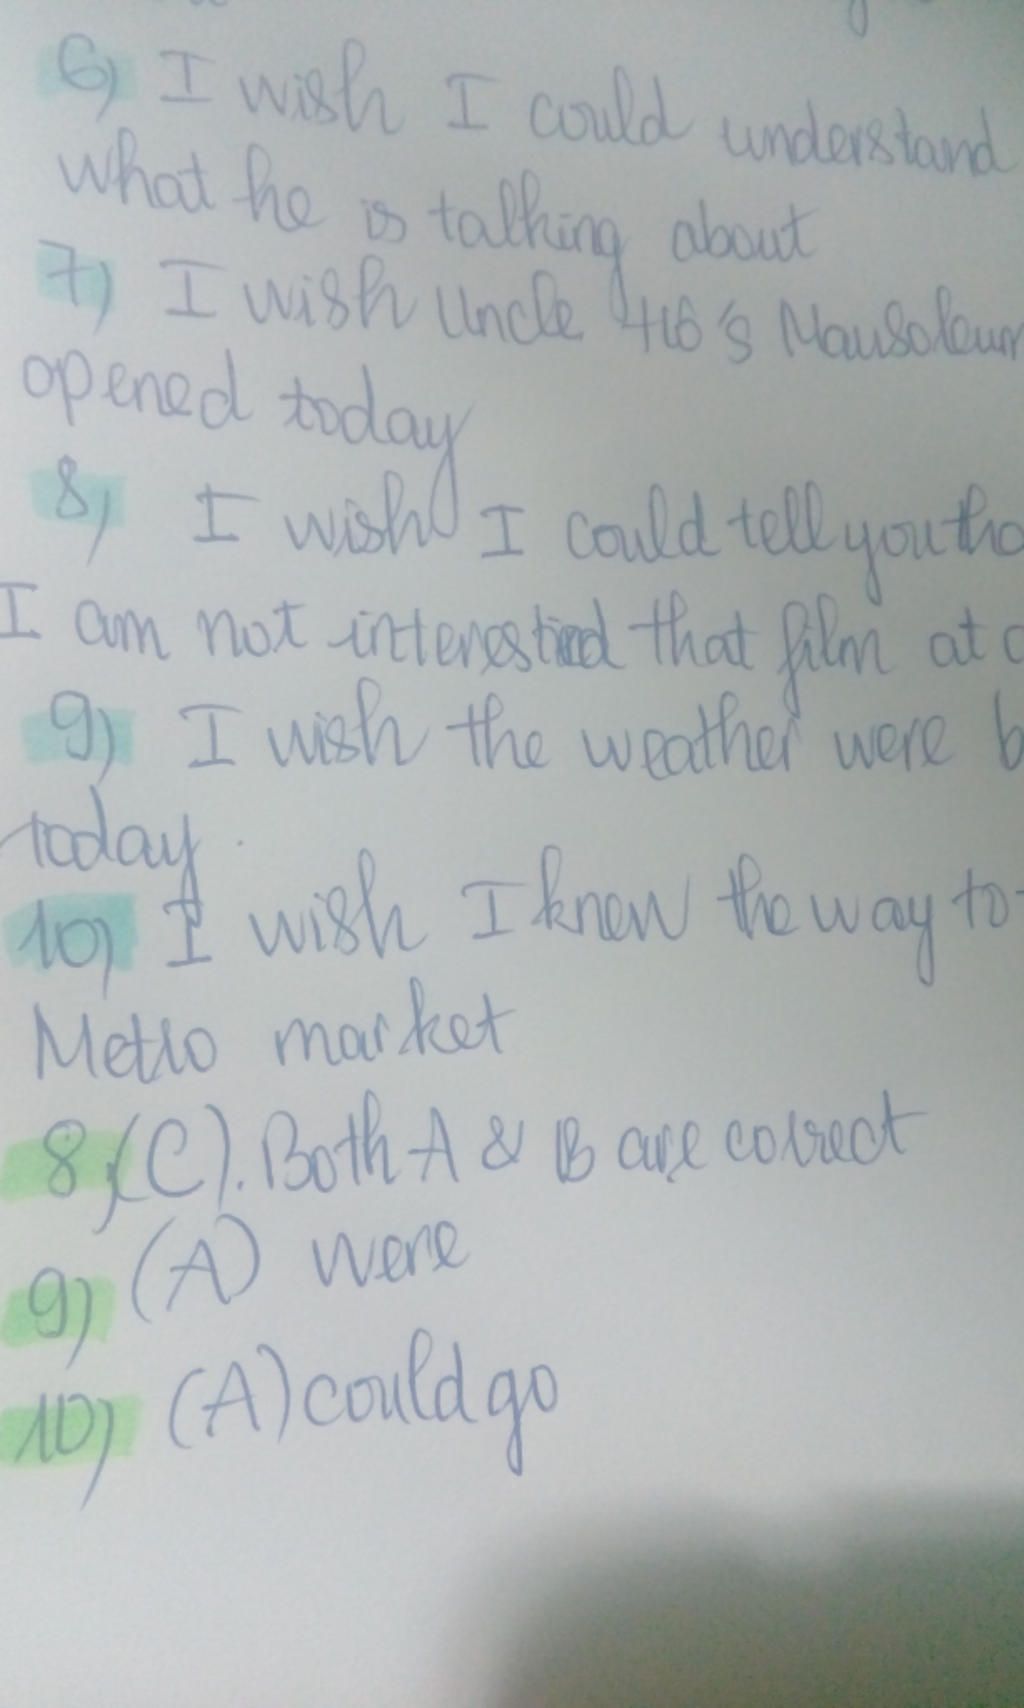 6) I wish I could understand
what he is talking about
7) I wish Uncle Ho's Mausoleum
opened today
8) I wish I could tell you tha
I am not interested that film at a
9) I wish the weather were b
today.
10) I wish I knew the way to
Metro market
8) (C). Both A & B are correct
9) (A) were
10) (A) could go